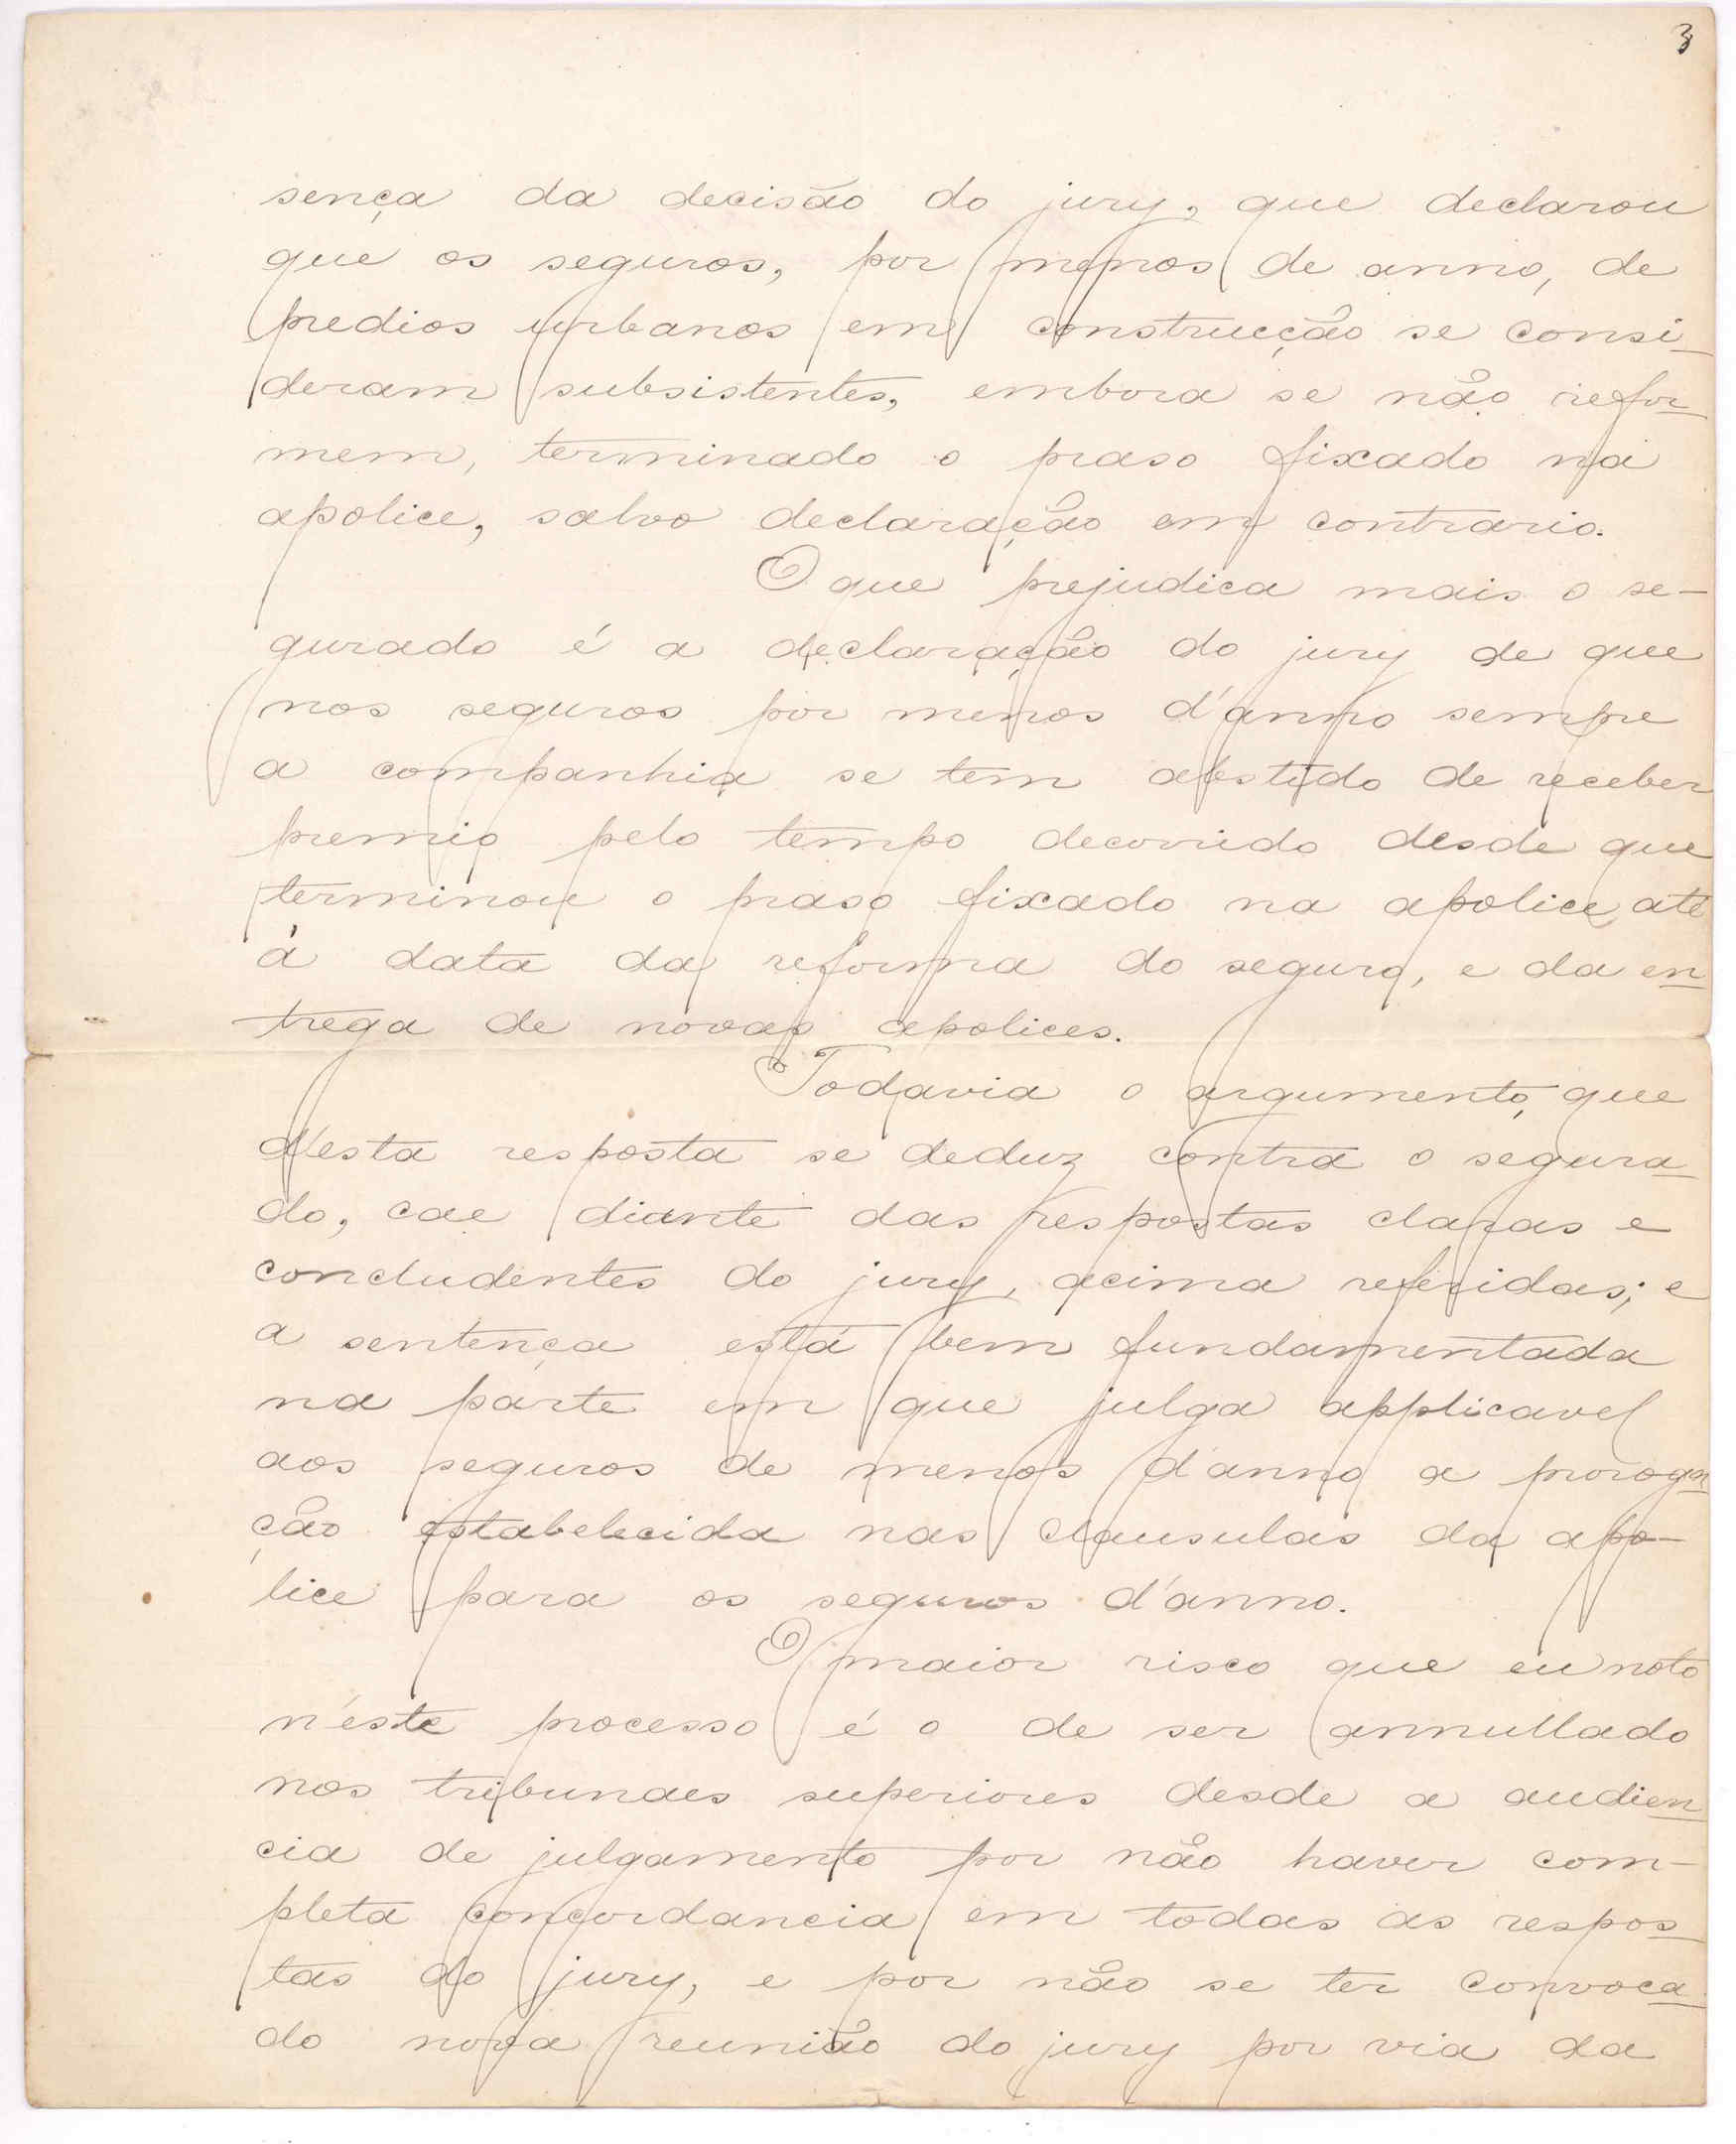 3
sença da decisão do jury, que declarou
que os seguros, por menos de anno, de
predios urbanos em construcção se consi-
deram subsistentes, embora se não refor-
mem, terminado o praso fixado na
apolice, salvo declaração em contrario.
O que prejudica mais o se-
gurado é a declaração do jury de que
nos seguros por menos d'anno sempre
a companhia se tem abstido de receber
premio pelo tempo decorrido desde que
terminou o praso fixado na apolice até
á data da reforma do seguro, e da en-
trega de novas apolices.
Todavia o argumento, que
d'esta resposta se deduz contra o segura-
do, cae diante das respostas claras e
concludentes do jury, acima referidas; e
a sentença está bem fundamentada
na parte em que julga applicavel
aos seguros de menos d'anno a proroga-
ção estabelecida nas clausulas da apo-
lice para os seguros d'anno.
O maior risco que eu noto
n'este processo é o de ser annullado
nos tribunaes superiores desde a audien-
cia de julgamento por não haver com-
pleta concordancia em todas as respos-
tas do jury, e por não se ter convoca-
do nova reunião do jury por via da